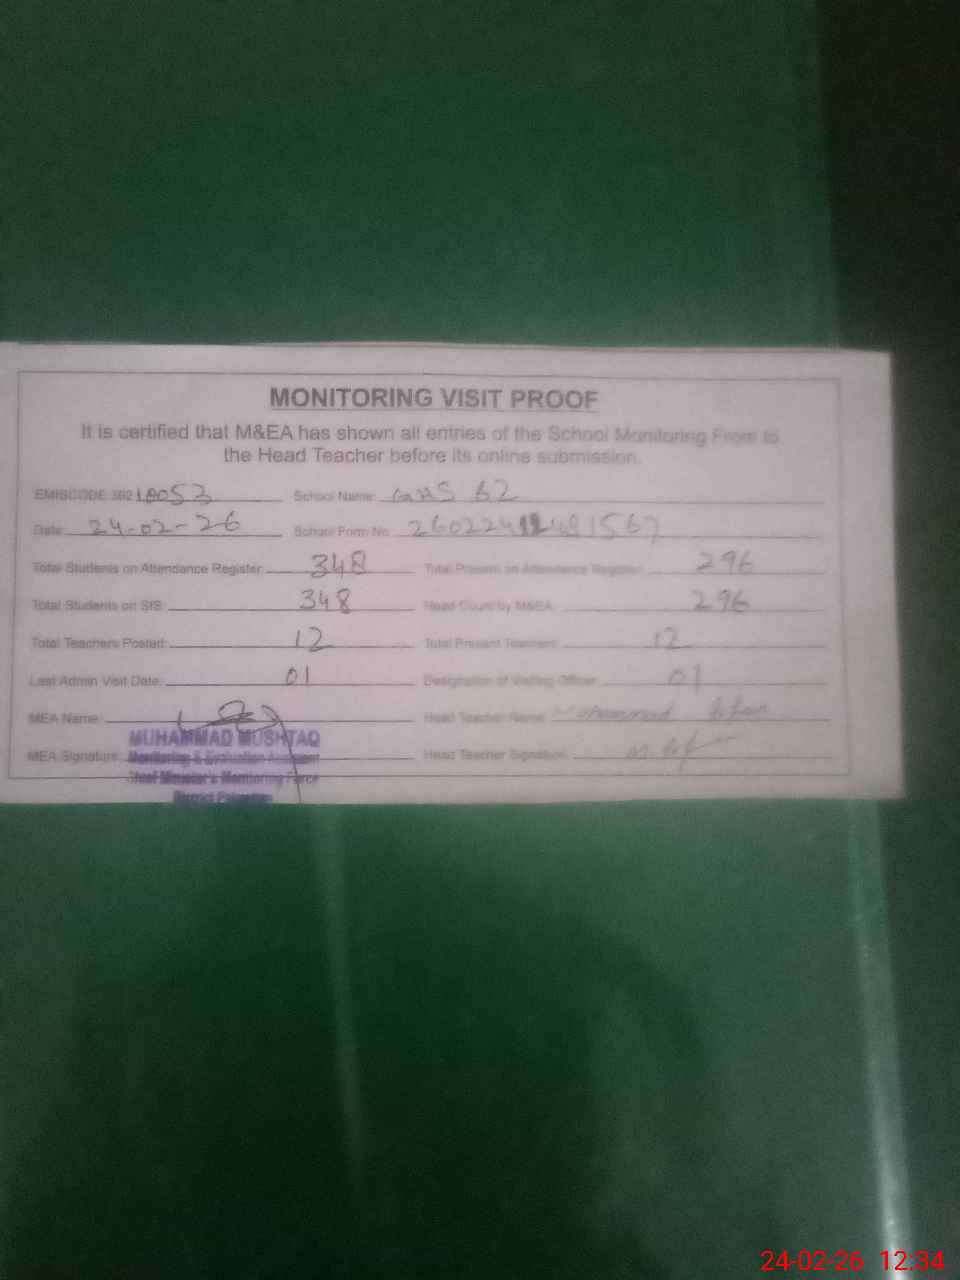 MONITORING VISIT PROOF
It is certified that M&EA has shown all entries of the School Monitoring From to
the Head Teacher before its online submission.
EMISCODE 362 10053 School Name: GHS 62
Date: 24-02-26 School Form No
Total Students on Attendance Register: 348 Total Present on Attendance Register: 296
Total Students on SIS: 348 Head Count by M&EA: 296
Total Teachers Posted: 12 Total Present Teachers: 12
Last Admin Visit Date: 01 Designation of Visiting Officer: 01
MEA Name: Head Teacher Name:
MUHAMMAD MUSHTAQ
MEA Signature: Monitoring & Evaluation Assistant Head Teacher Signature:
Chief Minister's Monitoring Force
District
24-02-26 12:34